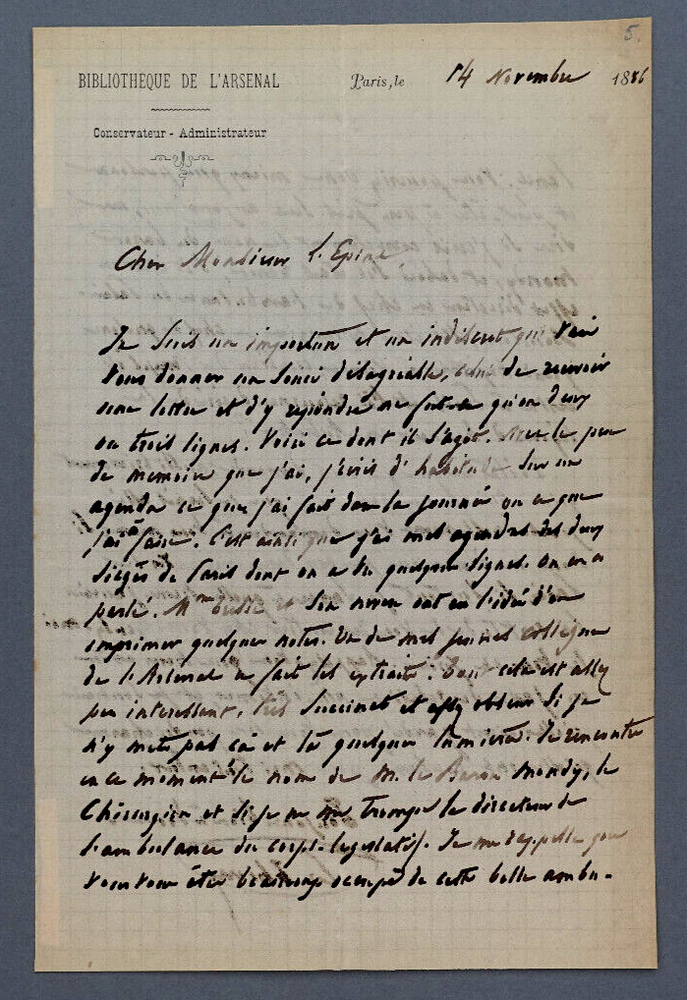 5.
BIBLIOTHEQUE DE L'ARSENAL
Paris, le 14 Novembre 1886
Conservateur - Administrateur
Cher Monsieur L'Epine
Je suis un importun et un indiscret qui vais
vous donner un souci désagréable, celui de recevoir
une lettre et d'y repondre ne fut-ce qu'en deux
ou trois lignes. Voici ce dont il s'agit. Avec le peu
de memoire que j'ai, j'écris d'habitude sur un
agenda ce que j'ai fait dans la journée ou ce que
j'ai à faire. C'est ainsi que j'ai mes agendas des deux
sièges de Paris dont on a lu quelques lignes. On en a
parlé. Mme et son neveu ont eu l'idée d'en
imprimer quelques notes. Un de mes jeunes collègues
de l'Arsenal a fait les extraits. Tout cela est assez
peu interessant, très succinct et assez obscur si je
n'y mets pas çà et là quelques lumières. Je rencontre
en ce moment le nom de M. le Baron Mundy, le
Chirurgien et si je ne me trompe le directeur de
l'ambulance du corps-legislatif. Je me rappelle que
vous vous êtes beaucoup occupé de cette belle ambu-